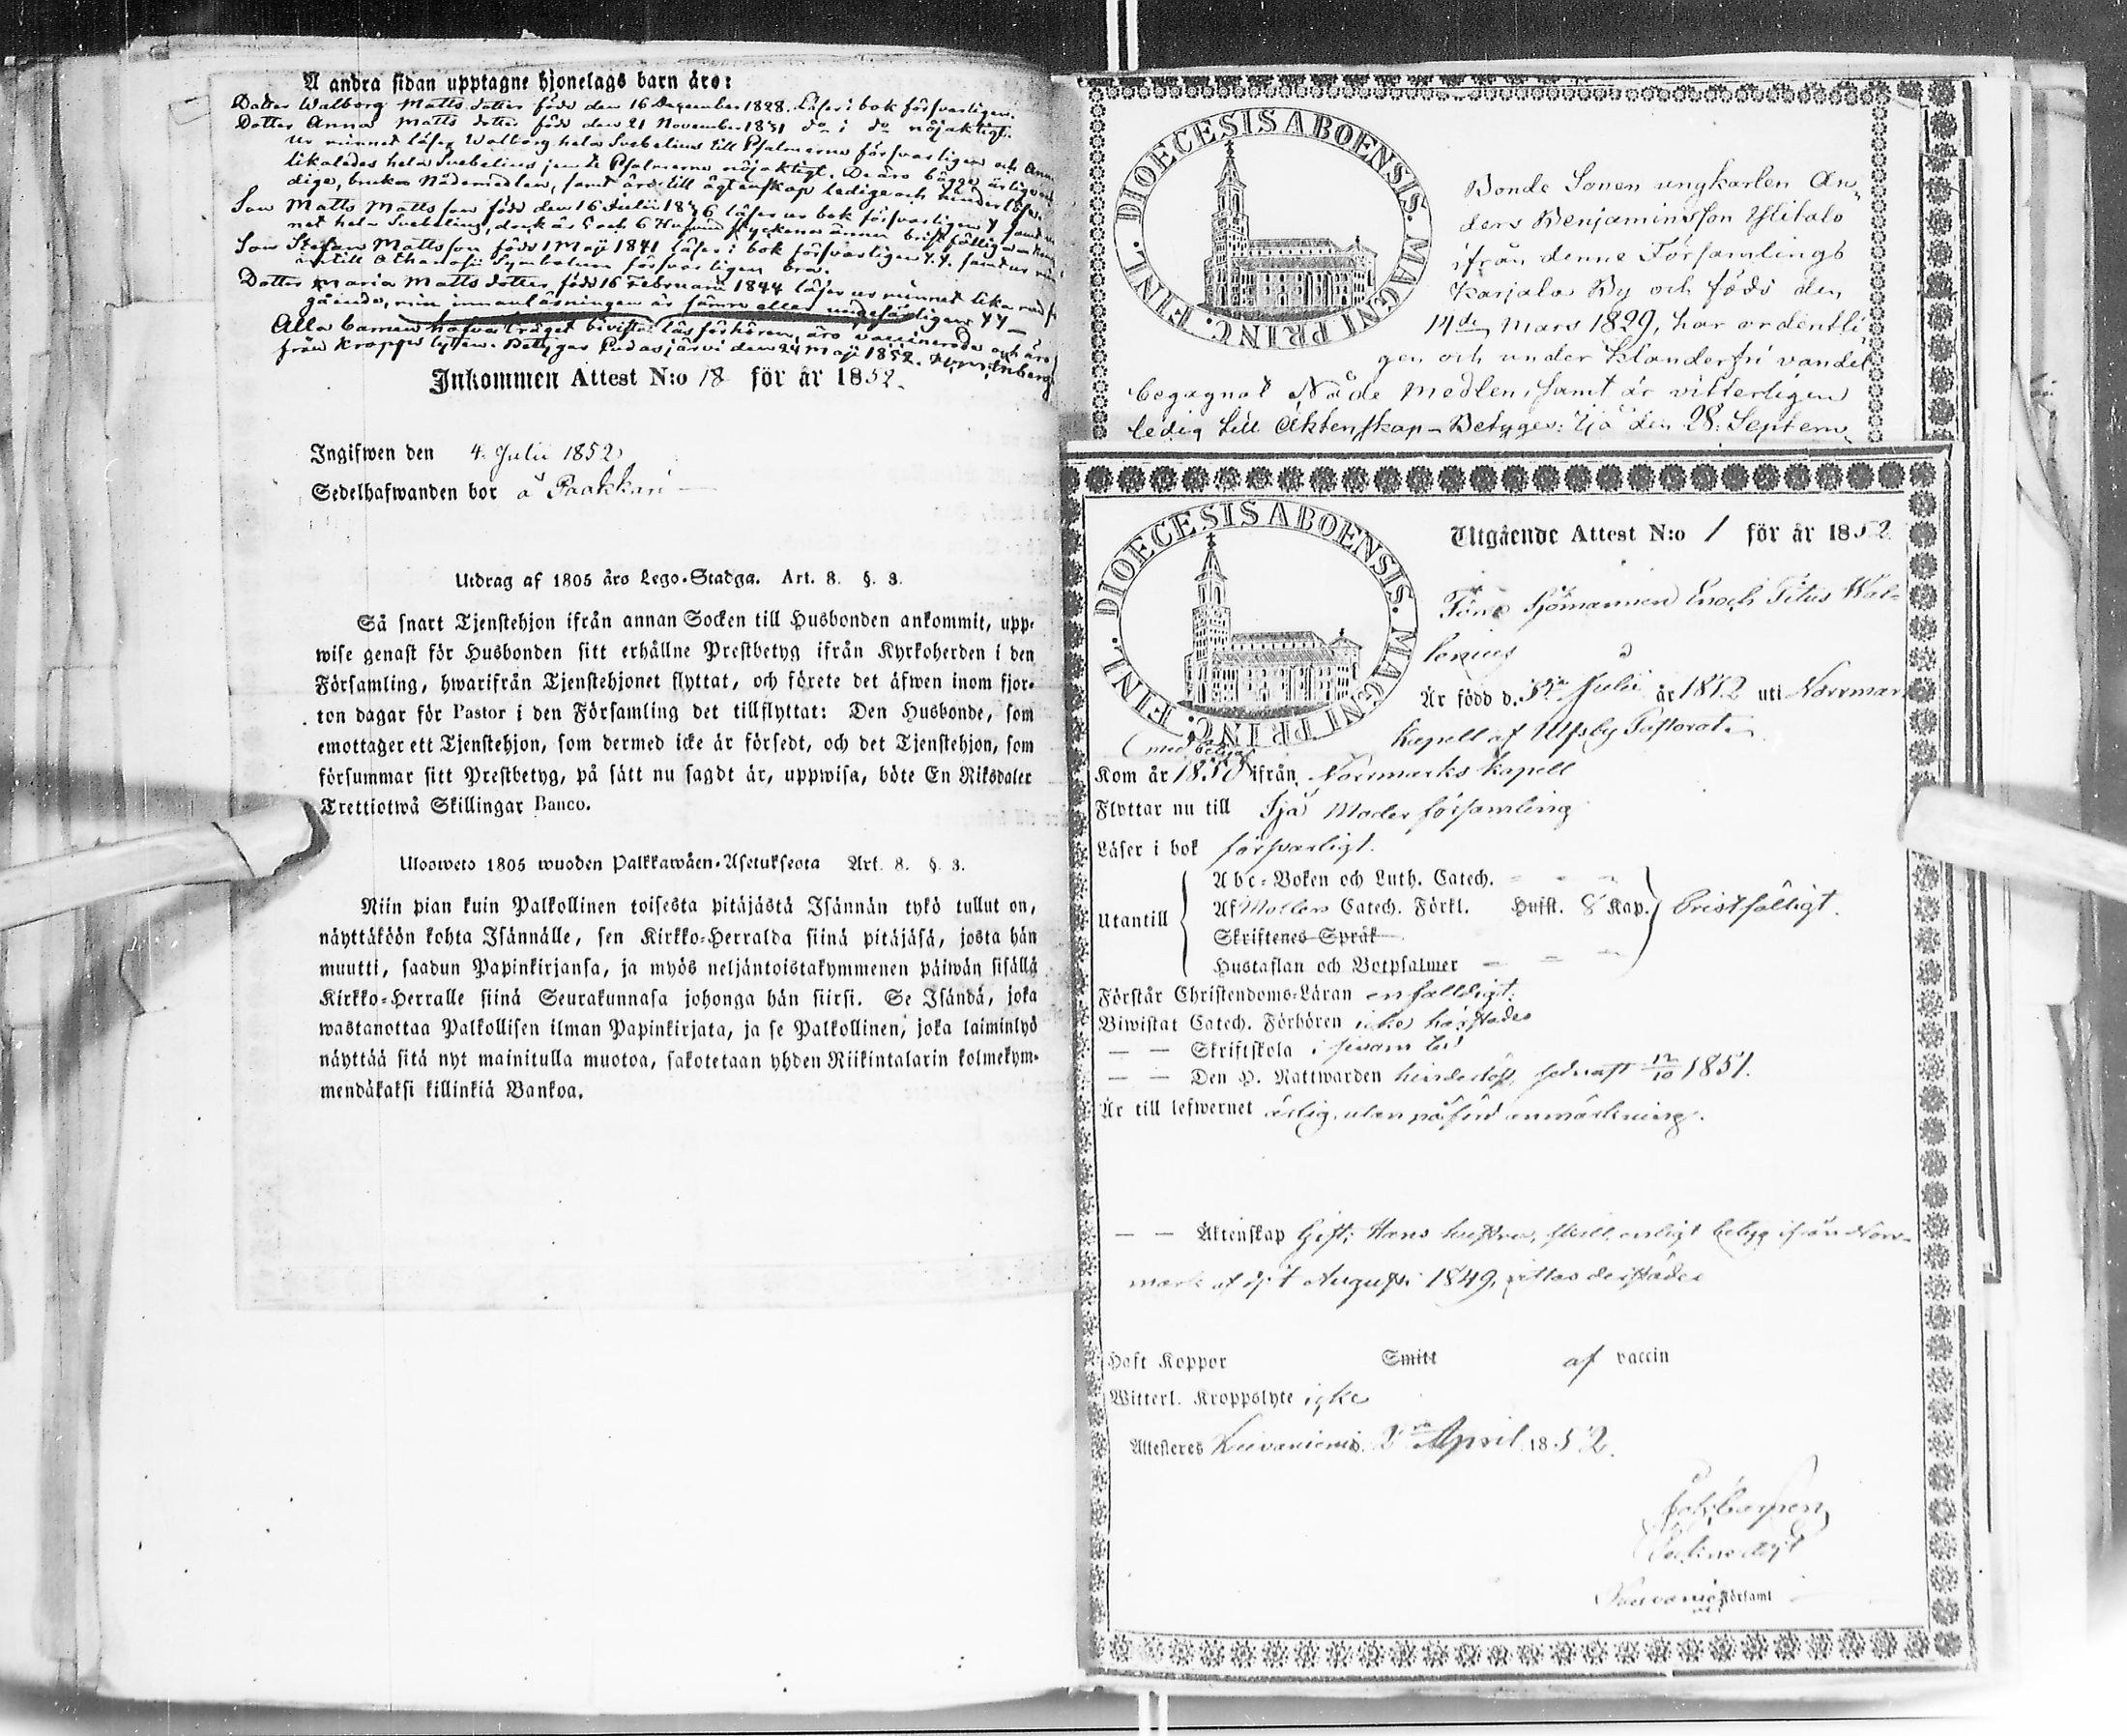 A andra sidan upptagne hjonelags barn äro:
Dotter Walborg Matts dotter född den 16 December 1828. Läser i bok försvarligen.
Dotter Anna Matts dotter född den 21 November 1831 do i do nöjaktigt.
Ur minnet läser Walborg hela Svebelius till Psalmerna försvarligen och Anna
likaledes hela Svebelius jemte Psalmerna nöjaktigt. De äro bägge ärliga och
dige, bruka Nådemedlen, samt äro till ägtenskap lediga och hinderlösa.
Son Matts Matts son född den 16 Julii 1836 läser ur bok försvarligen
net hela Svebelius, dock är 5 och 6 Hufvud styckena ännu bristfälliga
Son Stefan Mattsson född 1 Maji 1841 läser i bok försvarligen samt ur
till Athanasii Symbolum försvarligen bra.
Dotter Maria Matts dotter född 16 Februarii 1844 läser ur minnet lika med
gående, men innanläsningen är
Alla barnen hafva träget bivistat läsförhören, äro vaccinerade och äro
från kropps lyten. Betygar Pudasjärvi den 24 Maji 1852.
Inkommen Attest N:o 18 för år 1852.
Ingifwen den 4 Julii 1852
Sedelhafwanden bor å Paakkari
Utdrag af 1805 års Lego-Stadga. Art. 8. §. 3.
Så snart Tjenstehjon ifrån annan Socken till Husbonden ankommit, upp-
wise genast för Husbonden sitt erhållne Prestbetyg ifrån Kyrkoherden i den
Församling, hwarifrån Tjenstehjonet flyttat, och förete det äfwen inom fjor-
ton dagar för Pastor i den Församling det tillflyttat: Den Husbonde, som
emottager ett Tjenstehjon, som dermed icke är försedt, och det Tjenstehjon, som
försummar sitt Prestbetyg, på sätt nu sagdt är, uppwisa, böte En Riksdaler
Trettiotwå Skillingar Banco.
Ulosweto 1805 wuoden Palkkawäen-Asetuksesta Art. 8. §. 3.
Niin pian kuin Palkollinen toisesta pitäjästä Isännän tykö tullut on,
näyttäköön kohta Isännälle, sen Kirkko-Herralda siinä pitäjäsä, josta hän
muutti, saadun Papinkirjansa, ja myös neljäntoistakymmenen päiwän sisällä
Kirkko-Herralle siinä Seurakunnasa johonga hän siirsi. Se Isändä, joka
wastanottaa Palkollisen ilman Papinkirjata, ja se Palkollinen, joka laiminlyö
näyttää sitä nyt mainitulla muotoa, sakotetaan yhden Riikintalarin kolmekym-
mendäkaksi killinkiä Bankoa.
DIOECESIS ABOENSIS. MAGNI PRINC. FINL.
Bonde Sonen ungkarlen An-
ders Benjaminsson Ylitalo
ifrån denne Församlings
Karjala By och född den
14de Mars 1829, har ordentli
gen och under klanderfri vandel
begagnat Nåde Medlen, samt är vitterligen
ledig till Äktenskap - Betygar: Ijo den 28: Septem-
DIOECESIS ABOENSIS. MAGNI PRINC. FINL.
Utgående Attest N:o 1 för år 1852
Sjömannen Enoch Titus Wal-
Är född d. Julii år 1812 uti Norrmark
Kapell af Ulfsby Pastorat.
(med betyg
Kom år 1850 ifrån Norrmarks kapell
Flyttar nu till Ijo Moder församling
Läser i bok försvarligt.
Utantill
Abc-Boken och Luth. Catech.
Af Möllers Catech. Förkl. Hufst. 8 Kap. bristfälligt.
Skriftenes Språk
Hustaflan och Botpsalmer
Förstår Christendoms-Läran enfalldigt.
Biwistat Catech. Förhören icke härstädes
— — Skriftskola i
— — Den H. Nattwarden hinderlöst, sednast 12/10 1851.
Är till lefwernet ärlig, utan påförd anmärkning.
— — Äktenskap Gift; Hans hustru, skall enligt betyg ifrån Norr-
mark af d. 1 Augusti 1849, vistas derstädes
Haft Koppor Smitt af vaccin
Witterl. Kroppslyte icke
Attesteres Kuivaniemi 2 April 1852.
Församl